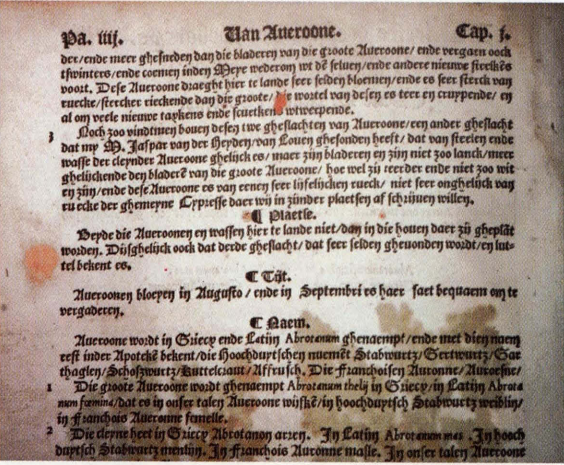 Pa. iiij. Van Aueroone. Cap. j.
der/ende meer ghesneden dan die bladeren van die groote Aueroone/ende vergaen oock
tswinters/ende coemen inden Meye wederom wt dē seluen/ende andere nieuwe steelkēs
voort. Dese Aueroone draeght hier te lande seer selden bloemen/ende es seer sterck van
ruecke/stercker rieckende dan die groote/ wortel van desen es teer en cruypende/ en
al om veele nieuwe taykens ende scuetkens wtwerpende.
3 Noch zoo vindtmen bouen desen twe gheslachten van Aueroone/een ander gheslacht
dat my M. Jaspar van der Heyden/van Louen ghesonden heeft/ dat van steelen ende
wasse der cleynder Aueroone ghelijck es/maer zijn bladeren en zijn niet zoo lanck/meer
ghelijckende den bladerē van die groote Aueroone/ hoe wel zij teerder ende niet zoo wit
en zijn/ende dese Aueroone es van eenen seer lijfelijcken rueck/ niet seer onghelijck van
ruecke der ghemeyne Cypresse daer wij in zijnder plaetsen af schrijuen willen.
¶ Plaetse.
Beyde die Aueroonen en wassen hier te lande niet/dan in die houen daer zij gheplāt
worden. Dijsghelijck oock dat derde gheslacht/dat seer selden gheuonden wordt/en lut-
tel bekent es.
¶ Tijt.
Aueroonen bloeyen in Augusto / ende in Septembri es haer saet bequaem om te
vergaderen.
¶ Naem.
Aueroone wordt in Griecx ende Latijn Abrotanum ghenaempt/ende met dien naem
eest inder Apotekē bekent/die Hoochduytschen nuemēt Stabwurtz/Gertwurtz/Gar
thaglen/Schoszwurtz/Kuttelcraut/Affrusch. Die Franchoisen Auronne/Auroesne/
1 Die groote Aueroone wordt ghenaempt Abrotanum thelij in Griecx/in Latijn Abrota
num fœmina/dat es in onser talen Aueroone wijfkē/in hoochduytsch Stabwurtz weiblin/
in Franchois Aueronne femelle.
2 Die cleyne heet in Griecx Abrotanon arren. In Latijn Abrotanum mas. In hooch
duytsch Stabwurtz menlin. In Franchois Auronne masle. In onser talen Aueroone